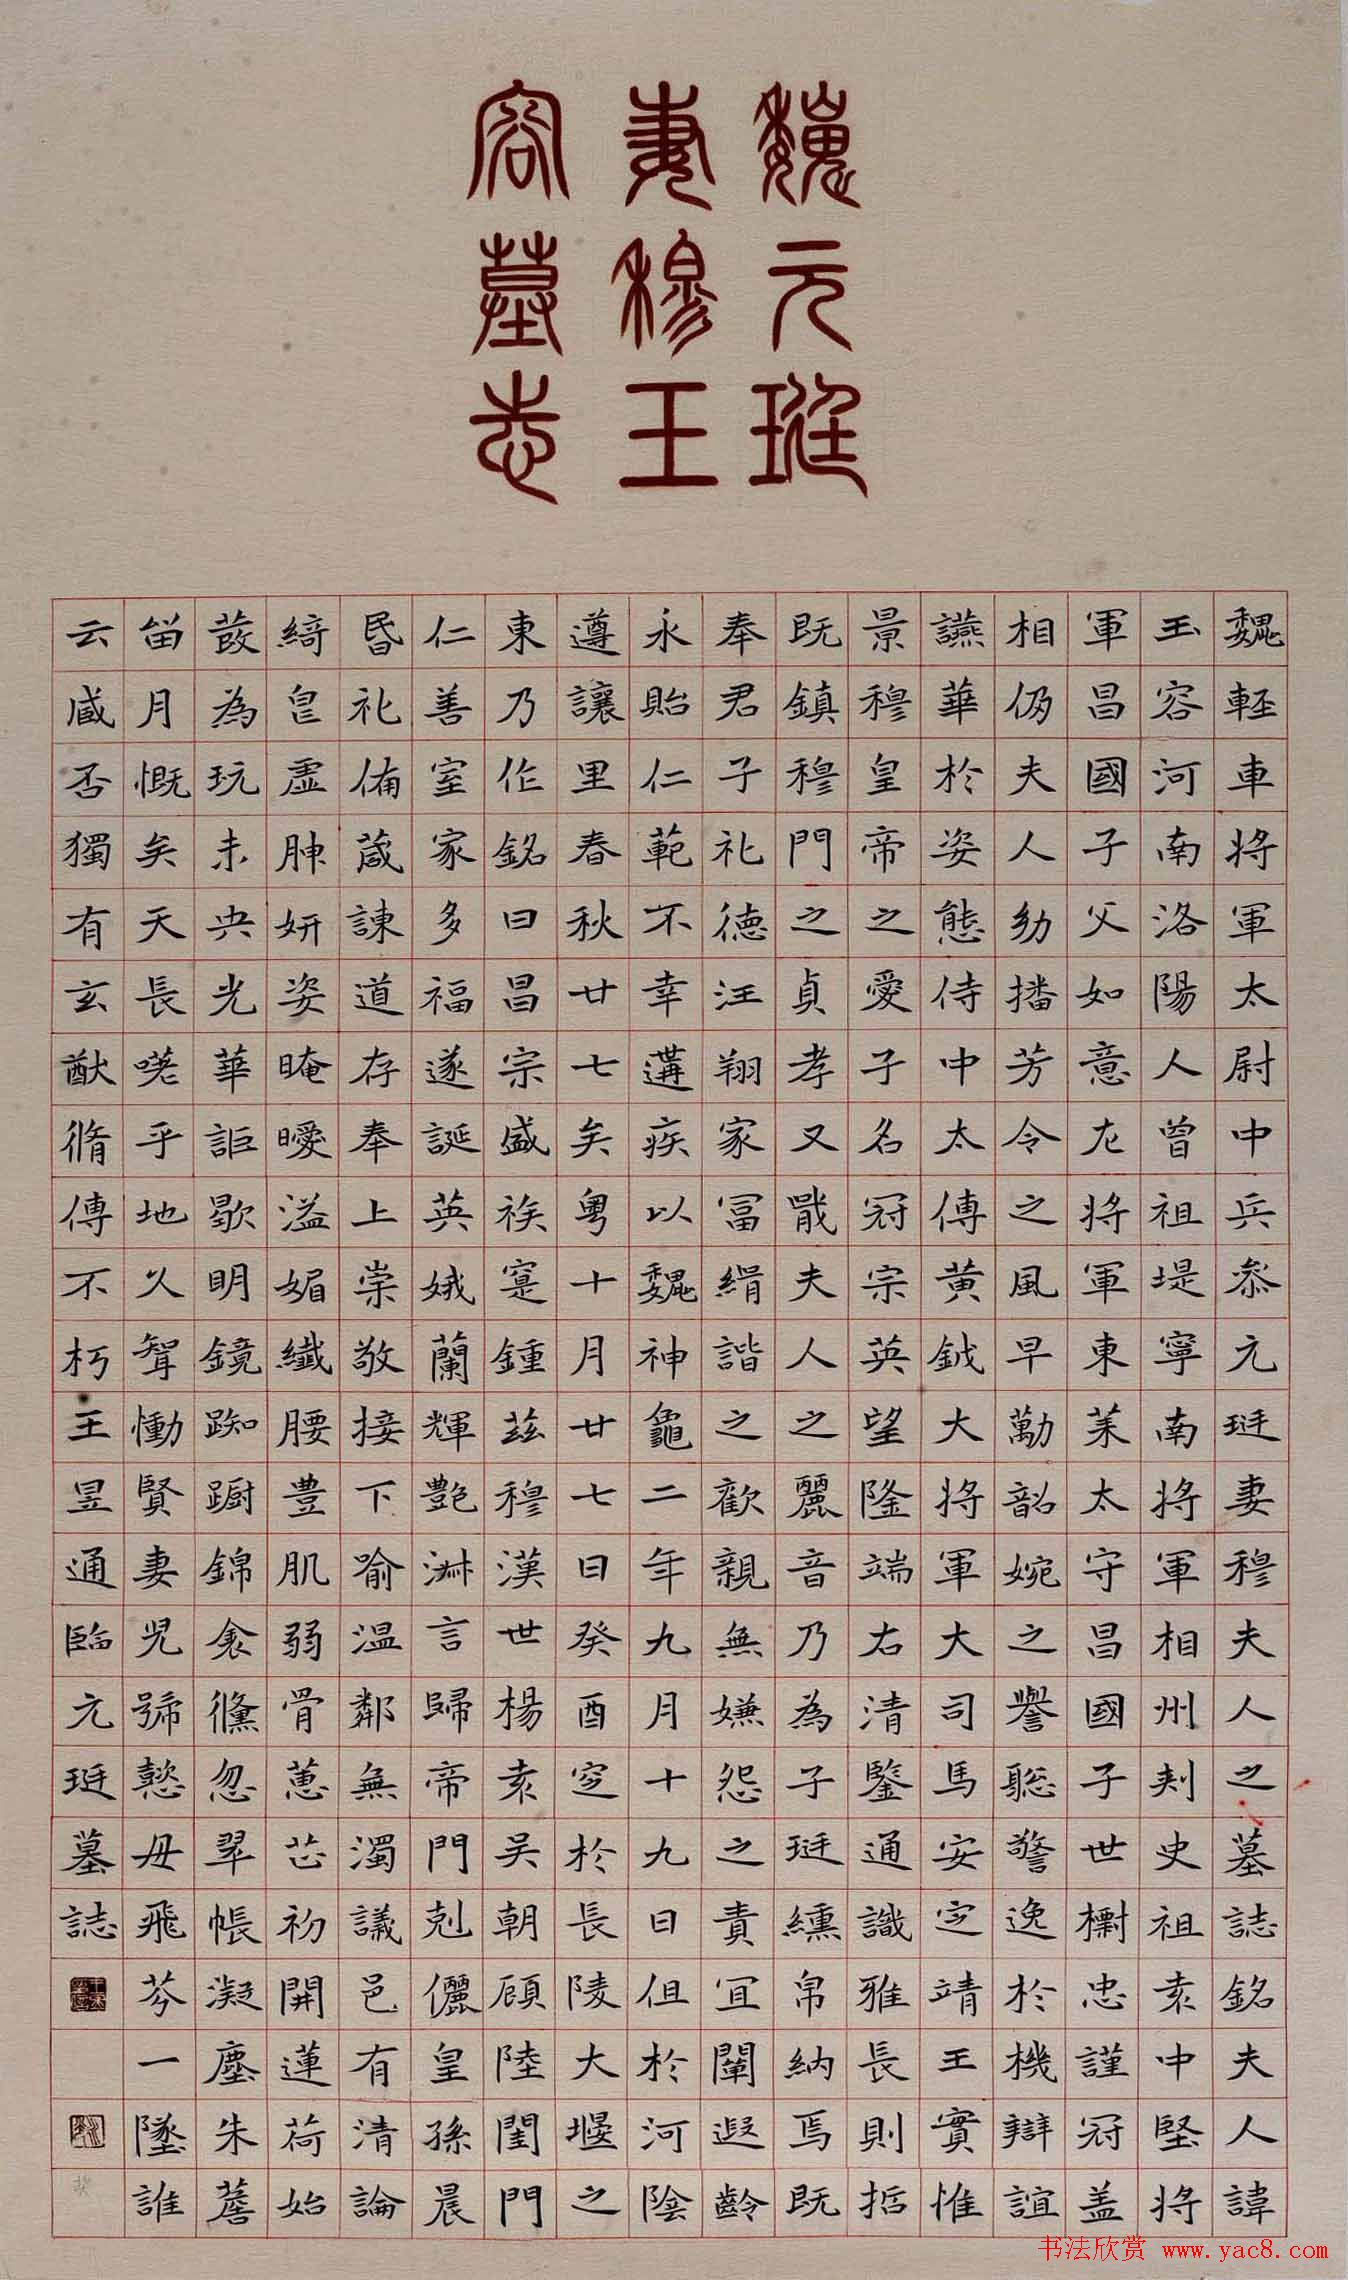 魏元珽
妻穆王
容墓志
魏輕車將軍太尉中兵叅元珽妻穆夫人之墓誌銘夫人諱
玉容河南洛陽人曾祖堤寧南將軍相州刾史祖袁中堅將
軍昌國子父如意左將軍東萊太守昌國子世檦忠謹冠盖
相仍夫人幼播芳令之風早勱韶婉之譽聡警逸於機辯誼
讌華於姿態侍中太傅黄鉞大將軍大司馬安定靖王實惟
景穆皇帝之愛子名冠宗英望隆端右清鑒通識雅長則哲
既鎮穆門之貞孝又戢夫人之麗音乃為子珽纁帛納焉既
奉君子礼德汪翔家冨緝諧之歡親無嫌怨之責宜闡遐齡
永貽仁範不幸遘疾以魏神龜二年九月十九日但於河陰
遵讓里春秋廿七矣粤十月廿七日癸酉窆於長陵大堰之
東乃作銘曰昌宗盛族寔鍾茲穆漢世楊袁吴朝顧陸閨門
仁善室家多福遂誕英娥蘭輝艶淋言歸帝門剋儷皇孫晨
昏礼俻葴諫道存奉上崇敬接下喻温鄰無濁議邑有清論
綺皃虚腆妍姿晻曖溢媚纖腰豊肌弱骨蕙芷初開蓮荷始
蕟為玩未央光華詎歇明鏡踟蹰錦衾儵忽翠帳凝塵朱簷
畄月慨矣天長嘆乎地久聟慟賢妻児號懿母飛芬一墜誰
云臧否獨有玄猷脩傳不朽王昱通臨元珽墓誌
书法欣赏 www.yac8.com